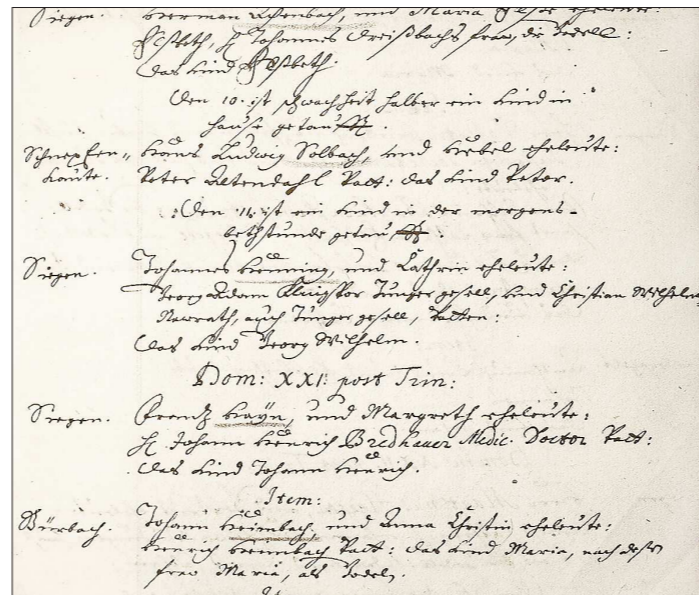 Siegen. Herman Achenbach, und Maria Elsbe eheleute:
Elsbeth, H. Johannes Dreisbachs fraw, die Godell:
das kind Elsbeth.
Den 10. ist schwachheit halber ein kind in
hause getaufft.
Schnepfen- Hans Ludwig Solbach, und eheleute:
Kaute. Peter Altendahl Patt: das kind Peter.
Den 14. ist ein kind in der morgens-
bethstunde getaufft.
Siegen. Johannes Henning, und Cathrin eheleute:
Georg Adam Junger gesell, und Christian Wilhelm
auch Junger gesell, Patten:
das kind Georg Wilhelm.
Dom: XXI: post Trin:
Siegen. Frantz und Margreth eheleute:
H. Johann Henrich Bredhauer Medic. Doctor Patt:
das kind Johann Henrich.
Item:
Bürbach. Johann Heimbach, und Anna Christin eheleute:
Henrich Patt: das kind Maria, nach deßen
fraw Maria, als Godel.